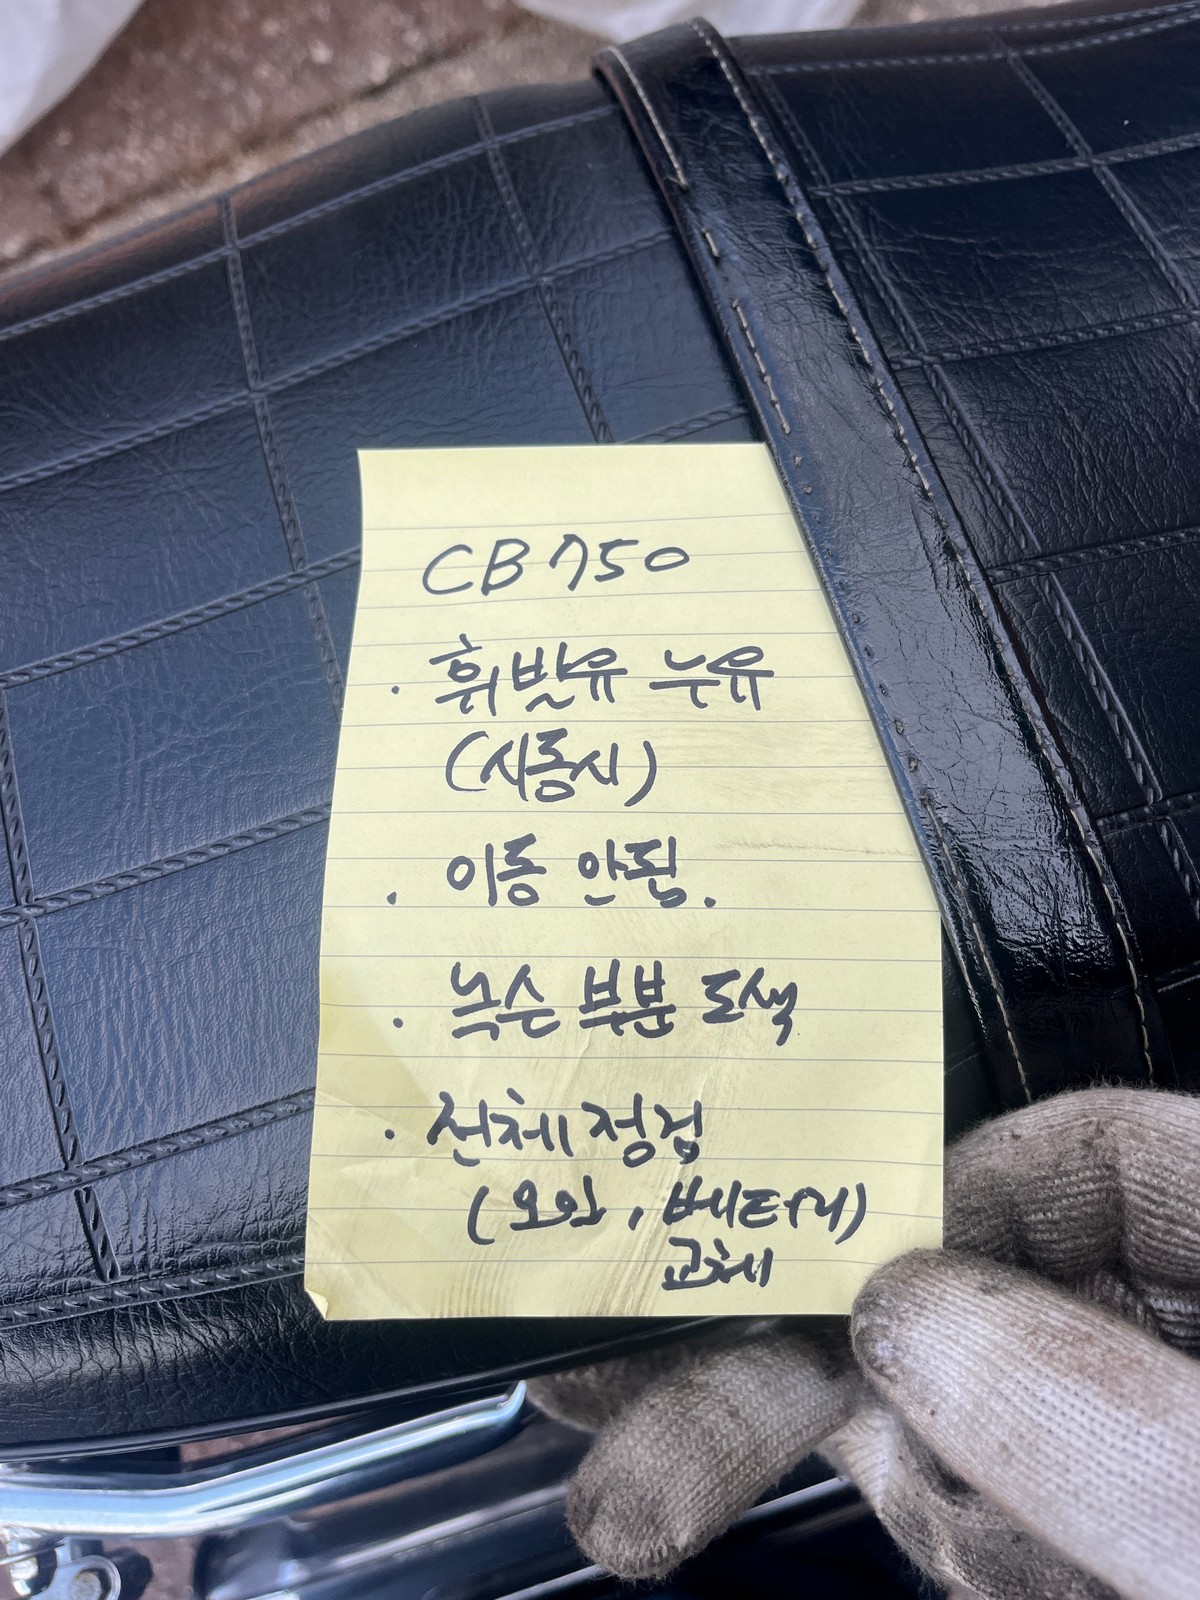 CB 750
· 휘발유 누유
(시동시)
· 이동 안됨.
· 녹슨 부분 도색
· 전체 정검
(오일, 베터리)
교체